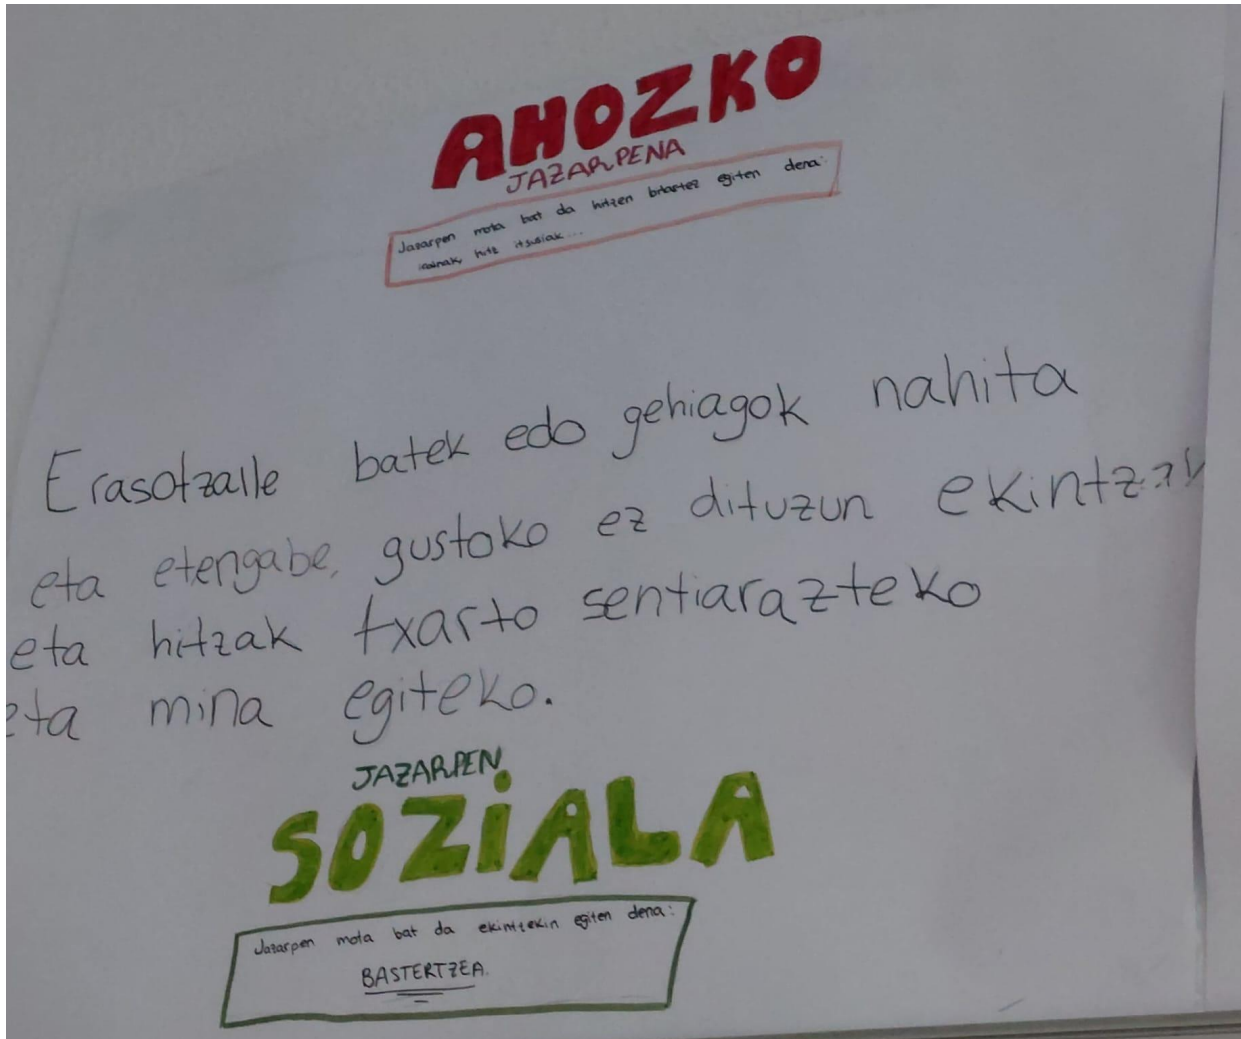 AHOZKO
JAZARPENA
Jazarpen mota bat da hitzen bitartez egiten dena:
irainak, hitz itsusiak...
Erasotzaile batek edo gehiagok nahita
eta etengabe, gustoko ez dituzun ekintzak
eta hitzak txarto sentiarazteko
eta mina egiteko.
JAZARPEN
SOZiALA
Jazarpen mota bat da ekintzekin egiten dena:
BASTERTZEA.